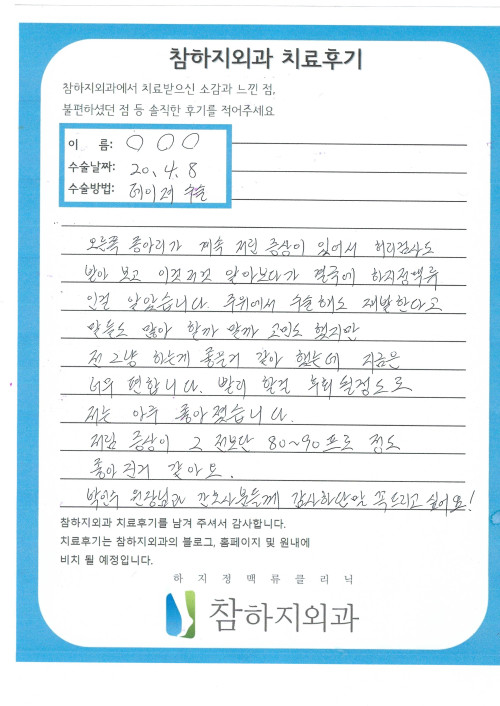 참하지외과 치료후기
참하지외과에서 치료받으신 소감과 느낀 점,
불편하셨던 점 등 솔직한 후기를 적어주세요
이 름: ○ ○ ○
수술날짜: 20. 4. 8
수술방법: 레이저 수술
오른쪽 종아리가 계속 저린 증상이 있어서 허리검사도
받아 보고 이것저것 알아보다가 결국에 하지정맥류
인걸 알았습니다. 주위에서 수술해도 재발한다고
말들도 많아 할까 말까 고민도 했지만
전 그냥 하는게 좋을거 같아 했는데 지금은
너무 편합니다. 빨리 할걸 후회될정도로
저는 아주 좋아졌습니다.
저림 증상이 그 전보단 80~90 프로 정도
좋아진거 같아요.
박인수 원장님과 간호사분들께 감사하단말 꼭 드리고 싶어요!
참하지외과 치료후기를 남겨 주셔서 감사합니다.
치료후기는 참하지외과의 블로그, 홈페이지 및 원내에
비치 될 예정입니다.
하지정맥류클리닉
참하지외과